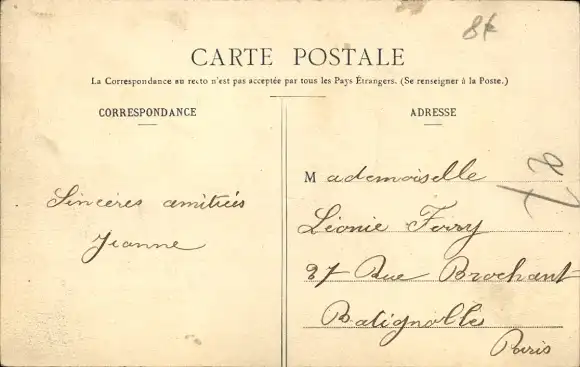 8f
CARTE POSTALE
La Correspondance au recto n'est pas acceptée par tous les Pays Étrangers. (Se renseigner à la Poste.)
CORRESPONDANCE
Sincères amitiés
Jeanne
ADRESSE
Mademoiselle
Léonie Ferry
27 Rue Brochant
Batignolles
Paris